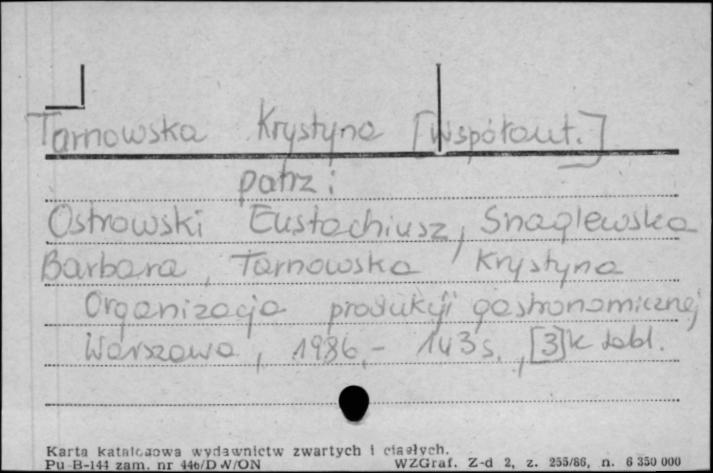 Tarnowska Krystyna [współaut.]
patrz:
Ostrowski Eustachiusz, Snaglewska
Barbara, Tarnowska Krystyna
Organizacja produkcji gastronomicznej
Warszawa, 1986,- 143 s., [3] k tabl.
Karta katalogowa wydawnictw zwartych i ciągłych.
Pu B-144 zam. nr 446/D W/ON WZGraf. Z-d 2, z. 255/86, n. 6 350 000